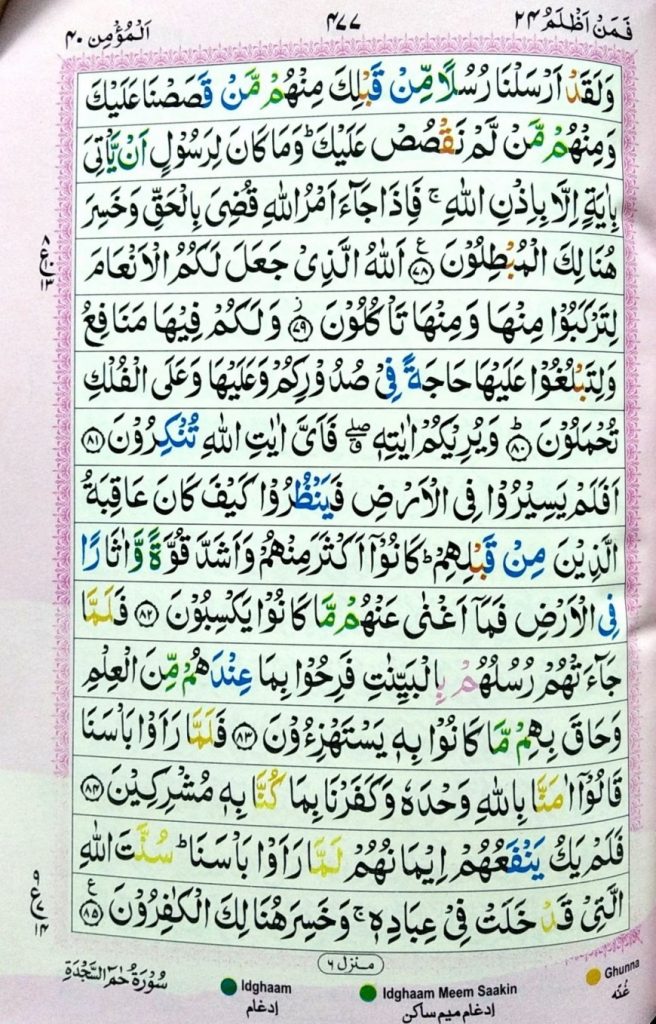 فَمَنْ اَظْلَمُ ٢٤
٤٧٧
اَلْمُؤْمِن ٤٠
وَلَقَدْ اَرْسَلْنَا رُسُلًا مِّنْ قَبْلِكَ مِنْهُمْ مَّنْ قَصَصْنَا عَلَيْكَ
وَمِنْهُمْ مَّنْ لَّمْ نَقْصُصْ عَلَيْكَ ؕ وَمَا كَانَ لِرَسُوْلٍ اَنْ يَّاْتِىَ
بِاٰيَةٍ اِلَّا بِاِذْنِ اللّٰهِ ۚ فَاِذَا جَآءَ اَمْرُ اللّٰهِ قُضِىَ بِالْحَقِّ وَخَسِرَ
هُنَالِكَ الْمُبْطِلُوْنَ ۧ﴿۷۸﴾ اَللّٰهُ الَّذِىْ جَعَلَ لَكُمُ الْاَنْعَامَ
لِتَرْكَبُوْا مِنْهَا وَمِنْهَا تَاْكُلُوْنَ ﴿۷۹﴾ وَلَكُمْ فِيْهَا مَنَافِعُ
وَلِتَبْلُغُوْا عَلَيْهَا حَاجَةً فِىْ صُدُوْرِكُمْ وَعَلَيْهَا وَعَلَى الْفُلْكِ
تُحْمَلُوْنَ ؕ﴿۸۰﴾ وَيُرِيْكُمْ اٰيٰتِهٖ ۖ فَاَىَّ اٰيٰتِ اللّٰهِ تُنْكِرُوْنَ ﴿۸۱﴾
اَفَلَمْ يَسِيْرُوْا فِى الْاَرْضِ فَيَنْظُرُوْا كَيْفَ كَانَ عَاقِبَةُ
الَّذِيْنَ مِنْ قَبْلِهِمْ ؕ كَانُوْۤا اَكْثَرَ مِنْهُمْ وَاَشَدَّ قُوَّةً وَّاٰثَارًا
فِى الْاَرْضِ فَمَاۤ اَغْنٰى عَنْهُمْ مَّا كَانُوْا يَكْسِبُوْنَ ﴿۸۲﴾ فَلَمَّا
جَآءَتْهُمْ رُسُلُهُمْ بِالْبَيِّنٰتِ فَرِحُوْا بِمَا عِنْدَهُمْ مِّنَ الْعِلْمِ
وَحَاقَ بِهِمْ مَّا كَانُوْا بِهٖ يَسْتَهْزِءُوْنَ ﴿۸۳﴾ فَلَمَّا رَاَوْا بَاْسَنَا
قَالُوْۤا اٰمَنَّا بِاللّٰهِ وَحْدَهٗ وَكَفَرْنَا بِمَا كُنَّا بِهٖ مُشْرِكِيْنَ ﴿۸۴﴾
فَلَمْ يَكُ يَنْفَعُهُمْ اِيْمَانُهُمْ لَمَّا رَاَوْا بَاْسَنَا ؕ سُنَّتَ اللّٰهِ
الَّتِىْ قَدْ خَلَتْ فِىْ عِبَادِهٖ ۚ وَخَسِرَ هُنَالِكَ الْكٰفِرُوْنَ ۧ﴿۸۵﴾
منزل ٦
سُوْرَةُ حٰمٓ السَّجْدَةِ
Idghaam
ادغام
Idghaam Meem Saakin
ادغام میم ساکن
Ghunna
غُنّه